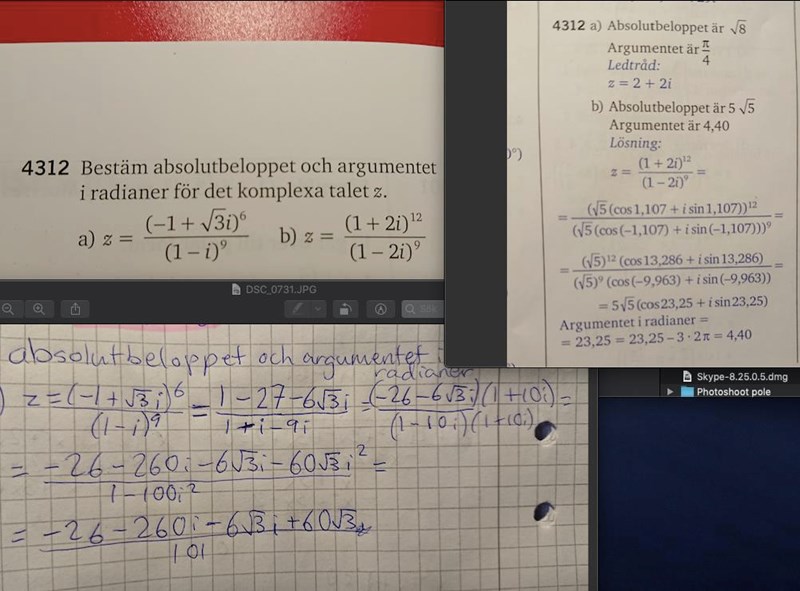 4312 Bestäm absolutbeloppet och argumentet
i radianer för det komplexa talet z.
a) z = (-1 + √3i)⁶ / (1 - i)⁹ b) z = (1 + 2i)¹² / (1 - 2i)⁹
4312 a) Absolutbeloppet är √8
Argumentet är π/4
Ledtråd:
z = 2 + 2i
b) Absolutbeloppet är 5√5
Argumentet är 4,40
Lösning:
z = (1 + 2i)¹² / (1 - 2i)⁹ =
= (√5(cos 1,107 + i sin 1,107))¹² / (√5(cos(-1,107) + i sin(-1,107)))⁹ =
= (√5)¹² (cos 13,286 + i sin 13,286) / (√5)⁹ (cos(-9,963) + i sin(-9,963)) =
= 5√5(cos 23,25 + i sin 23,25)
Argumentet i radianer =
= 23,25 = 23,25 - 3 · 2π = 4,40
DSC_0731.JPG
absolutbeloppet och argumentet i
radianer
) z = (-1 + √3i)⁶ / (1 - i)⁹ = 1 - 27 - 6√3i / 1 + i - 9i = (-26 - 6√3i)(1 + 10i) / (1 - 10i)(1 + 10i) =
= -26 - 260i - 6√3i - 60√3i² / 1 - 100i² =
= -26 - 260i - 6√3i + 60√3 / 101
Skype-8.25.0.5.dmg
Photoshoot pole